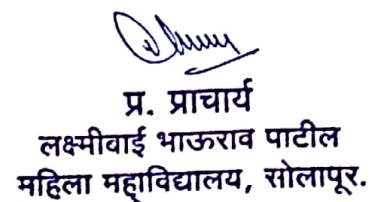 प्र. प्राचार्य
लक्ष्मीवाई भाऊराव पाटील
महिला महाविद्यालय, सोलापूर.